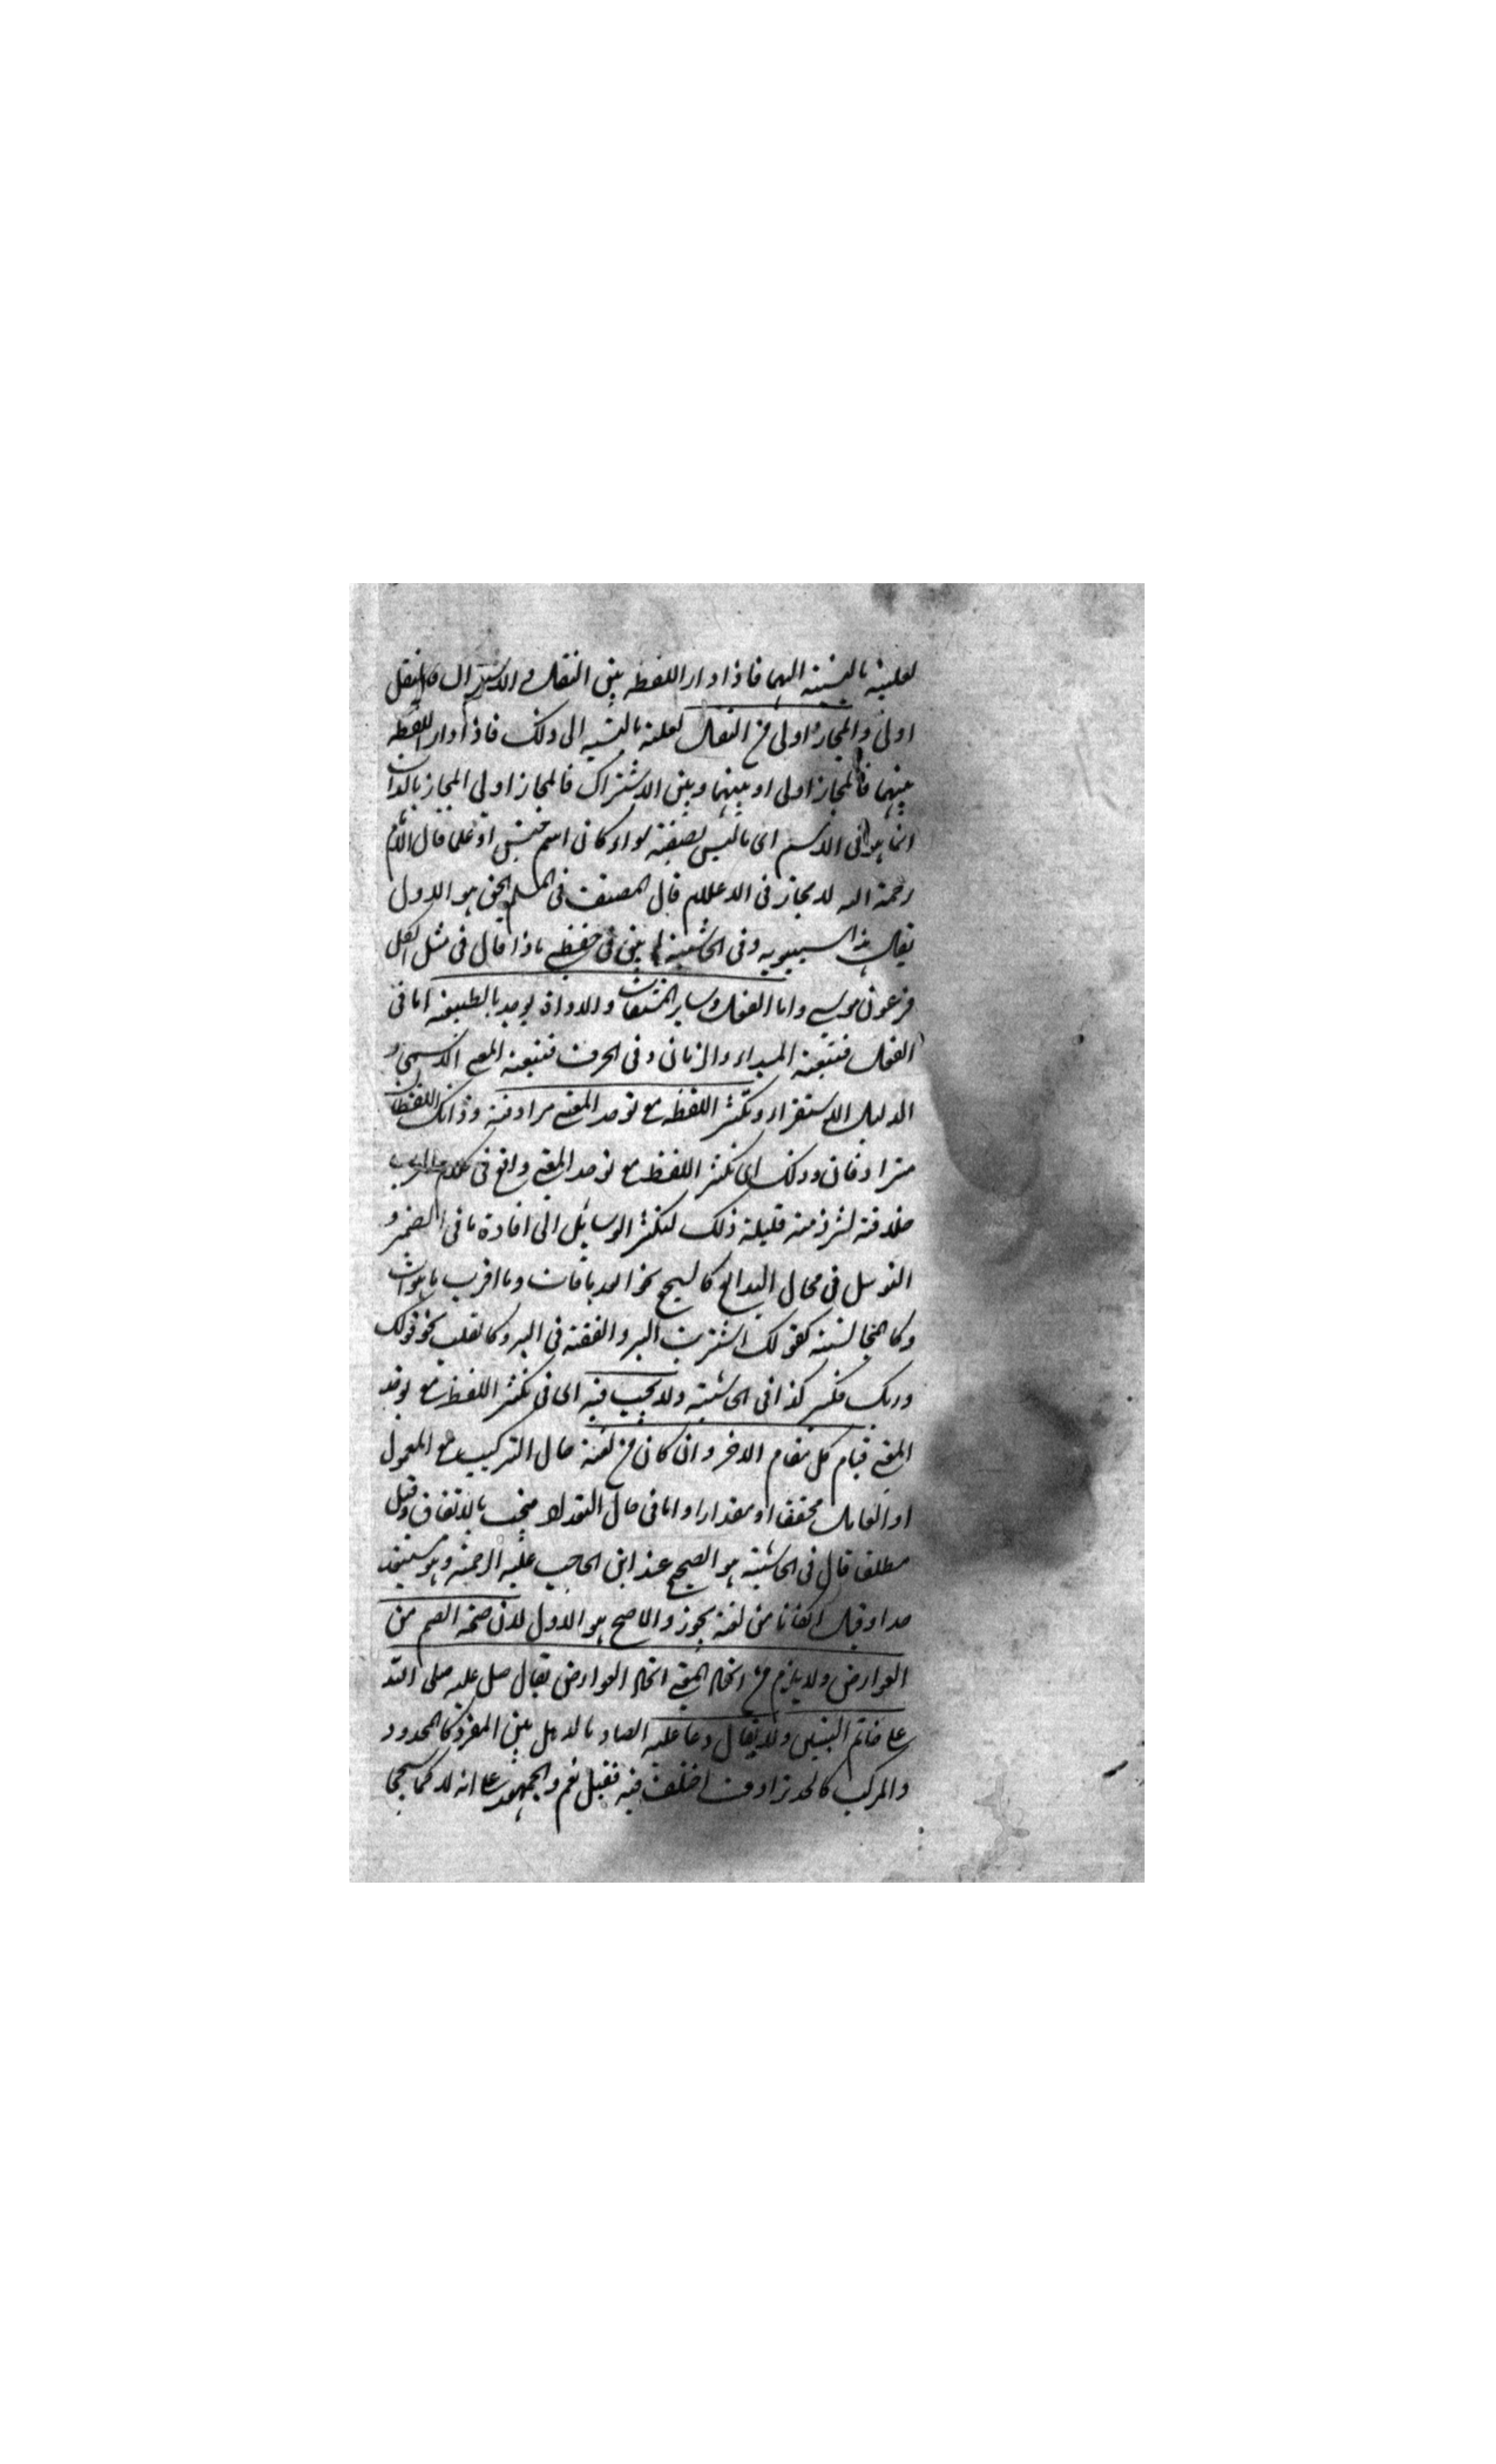 لغلبته بالنسبة اليهما فاذا دار اللفظ بين النقل و الاشتراك فالنقل
اولى والمجاز اولى من النقل لغلبته بالنسبة الى ذلك فاذا دار اللفظ
بينهما فالمجاز اولى او بينهما وبين الاشتراك فالمجاز اولى المجاز بالذات
انما هو في الاسم اى ما ليس بصفة سواء كان اسم جنس او علما قال الامام
رحمة الله لا مجاز في الاعلام قال المصنف في المسلم الحق هو الاول
يقال هذا سيبويه وفي الحاشية اى في حفظه ماذا قال في مثل لكل
فرعون موسى واما الفعل وساير المشتقات والاداة يوجد بالطبيعة اما في
الفعل فبتبعية المبداء والزمان وفي الحرف فبتبعية المعنى الاسمي و
الدليل الاستقراء وتكثر اللفظ مع توحد المعنى مرادفة وذانك اللفظان
مترادفان وذلك اى تكثر اللفظ مع توحد المعنى واقع في كلام العرب
خلافة لشرذمة قليلة ذلك لتكثر الوسايل الى افادة ما في الضمير و
التوسل في محال البدايع كالسجع نحو ما بعد ما فات وما اقرب ما هو ات
وكالمجانسة كقولك اشتريت البر وانفقته في البر وكالقلب نحو قولك
وربك فكبر كذا في الحاشية ولا يجب فيه اى في تكثر اللفظ مع توحد
المعنى قيام كل مقام الاخر وان كان من لغة حال التركيب مع المعمول
او العامل محققا او مقدارا واما في حال التعداد فيجب بالاتفاق وقيل
مطلقا قال في الحاشية هو الصحيح عند ابن الحاجب عليه الرحمة وهو مستبعد
جدا وقيل ان كانا من لغة يجوز والاصح هو الاول لان صحة الضم من
العوارض ولا يلزم من اتحاد المعنى اتحاد العوارض يقال صل عليه صلى الله
على خاتم النبيين ولا يقال دعا عليه الصاد بالد هل بين المفرد كالمحدود
والمركب كالحد ترادف اختلف فيه فقيل نعم والجمهور على انه لا كما سيجئ